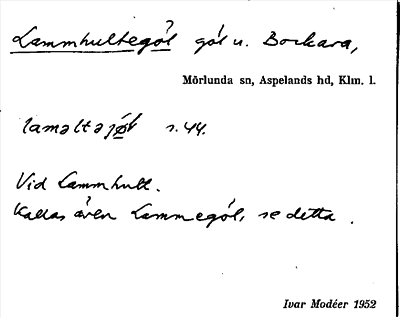 Lammhultegöl göl u. Bockara,
Mörlunda sn, Aspelands hd, Klm. l.
laməltəjø̀l s. 44.
Vid Lammhult.
Kallas även Lammegöl, se detta.
Ivar Modéer 1952